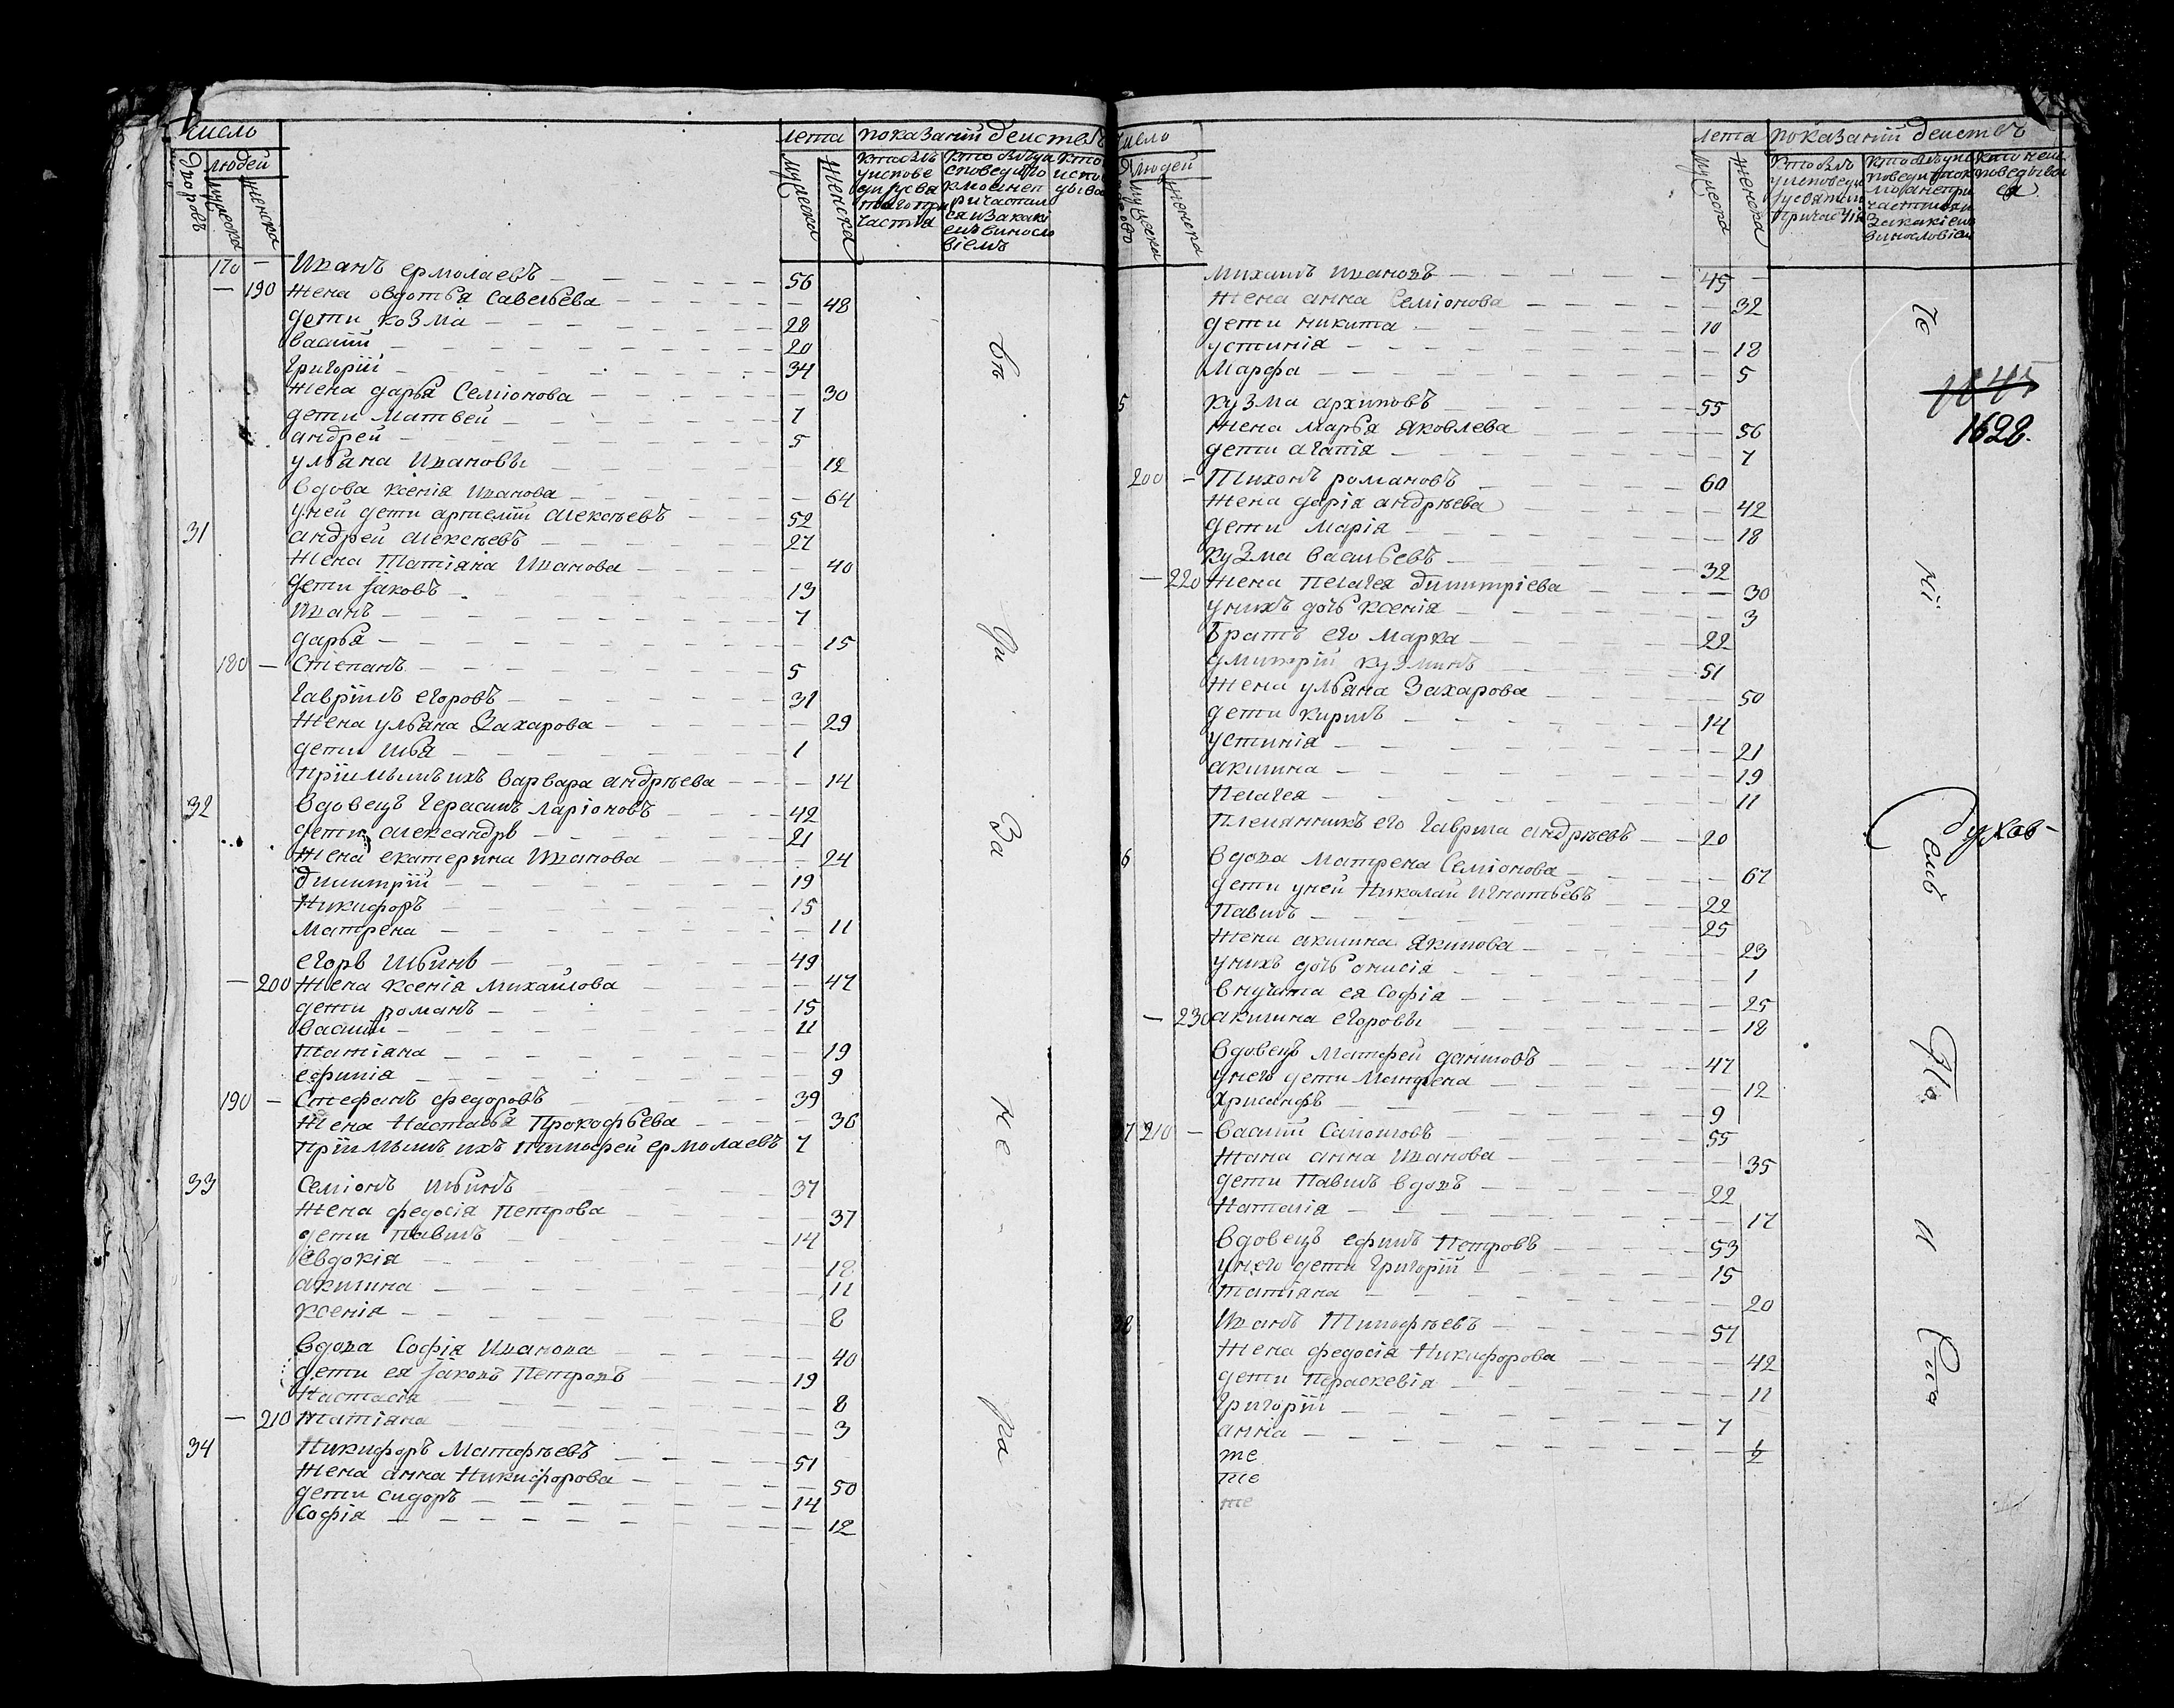 число
лета показаний действъ
дворовъ людей
мужеска женска
мужеска женска
170 — Иванъ ермолаевъ 56
— 190 жена овдотья савельева — 48
дети козма 28
василий 20
григорий 34
жена дарья семионова — 30
дети матвей 7
андрей 5
ульяна ивановы — 12
вдова ксения иванова — 64
у ней дети артемий алексеевъ 52
31 андрей алексеевъ 27
жена татияна иванова — 40
дети яковъ 13
иванъ 7
дарья — 15
180 — степанъ 5
гавриилъ егоровъ 31
жена ульяна захарова — 29
дети илья 1
приимышъ ихъ варвара андрѣева — 14
32 вдовецъ герасимъ ларионовъ 42
дети александръ 21
жена екатерина иванова — 24
димитрий 19
никифоръ 15
матрена — 11
егоръ ильинъ 49
— 200 жена ксения михайлова — 47
дети романъ 15
василий 11
татияна — 19
ефимия — 9
190 — стефанъ федоровъ 39
жена настасья прокофьева — 36
приимышъ ихъ тимофей ермолаевъ 7
33 семионъ ильинъ 37
жена федосия петрова — 37
дети павилъ 14
евдокия — 18
акилина — 11
ксения — 8
вдова софия иванова — 40
дети ея яковъ петровъ 19
настасия — 8
— 210 татияна — 3
34 никифоръ матфѣевъ 51
жена анна никифорова — 50
дети сидоръ 14
софия — 12
въ
ди
за
не
ра
число
лета показаний действъ
людей
мужеска женска
мужеска женска
михаилъ ивановъ 45 —
жена анна семионова — 32
дети никита 10
устиния — 18
марфа — 5
5 кузма архиповъ 55
жена марья яковлева — 56
дети агапия — 7
200 — тихонъ романовъ 60
жена дария андрѣева — 42
дети мария — 18
кузма васильевъ 32
— 220 жена пелагея димитриева — 30
у нихъ дочь ксения — 3
братъ его марка 22
димитрий кузминъ 51
жена ульяна захарова — 50
дети кирилъ 14
устиния — 21
акилина — 19
пелагея — 11
племянникъ его гаврила андрѣевъ 20
6 вдова матрена семионова — 67
дети у ней николай игнатьевъ 22
павилъ 25
жена акилина якимова — 23
у нихъ дочь онисия — 1
внучата ея софия — 25
— 230 акилина егоровы — 18
вдовецъ матфей даниловъ 47
у него дети матрена — 12
хрисанфъ 9
7 210 — василий самоиловъ 55
жана анна иванова — 35
дети павилъ вдовъ 22
наталия — 17
вдовецъ ефимъ петровъ 53
у него дети григорий 15
татияна — 20
8 иванъ тимофѣевъ 57
жена федосия никифорова — 42
дети параскевия — 11
григорий 7
анна —
те
те
те
че
1622.
ни
духов-
емъ
но
и